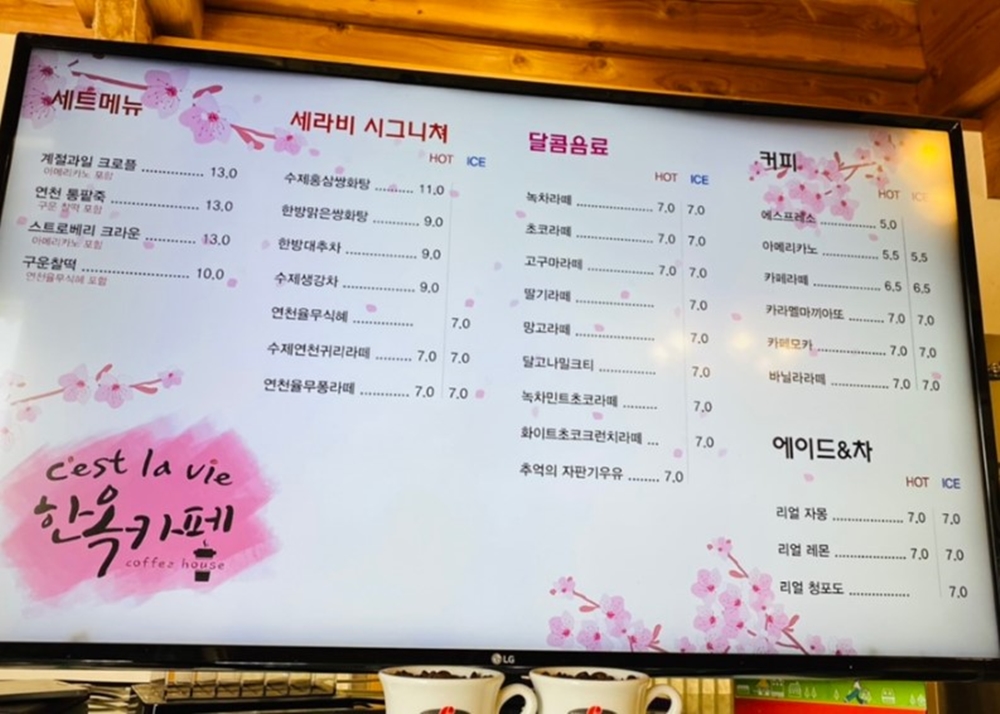 세트메뉴
계절과일 크로플 13,0
아메리카노 포함
연천 통팥죽 13,0
구운 찰떡 포함
스트로베리 크라운 13,0
아메리카노 포함
구운찰떡 10,0
연천율무식혜 포함
c'est la vie
한옥카페
coffee house
세라비 시그니쳐
HOT ICE
수제홍삼쌍화탕 11,0
한방맑은쌍화탕 9,0
한방대추차 9,0
수제생강차 9,0
연천율무식혜 7,0
수제연천귀리라떼 7,0 7,0
연천율무퐁라떼 7,0 7,0
달콤음료
HOT ICE
녹차라떼 7,0 7,0
초코라떼 7,0 7,0
고구마라떼 7,0 7,0
딸기라떼 7,0
망고라떼 7,0
달고나밀크티 7,0
녹차민트초코라떼 7,0
화이트초코크런치라떼 7,0
추억의 자판기우유 7,0
커피
HOT ICE
에스프레소 5,0
아메리카노 5,5 5,5
카페라떼 6,5 6,5
카라멜마끼아또 7,0 7,0
카페모카 7,0 7,0
바닐라라떼 7,0 7,0
에이드&차
HOT ICE
리얼 자몽 7,0 7,0
리얼 레몬 7,0 7,0
리얼 청포도 7,0
LG